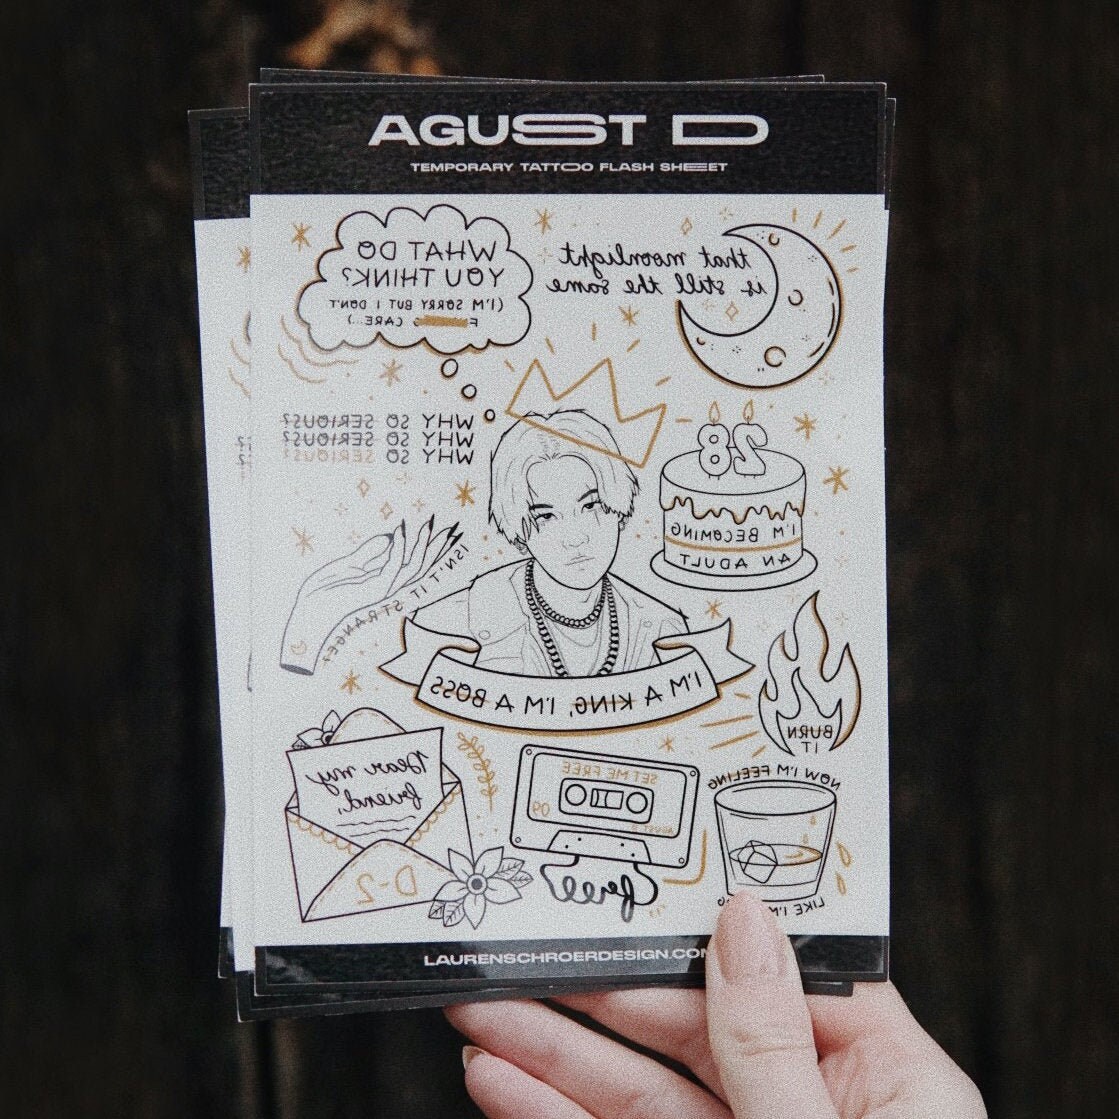 AGUST D
TEMPORARY TATTOO FLASH SHEET
WHAT DO
YOU THINK?
(I'M SORRY BUT I DON'T
F CARE...)
that moonlight
is still the same
WHY SO SERIOUS?
WHY SO SERIOUS?
WHY SO SERIOUS?
28
I'M BECOMING
AN ADULT
ISN'T IT STRANGE?
I'M A KING, I'M A BOSS
BURN
IT
Dear my
friend,
D-2
SET ME FREE
09
AGUST D
free
NOW I'M FEELING
LIKE I'M
LAURENSCHROERDESIGN.COM